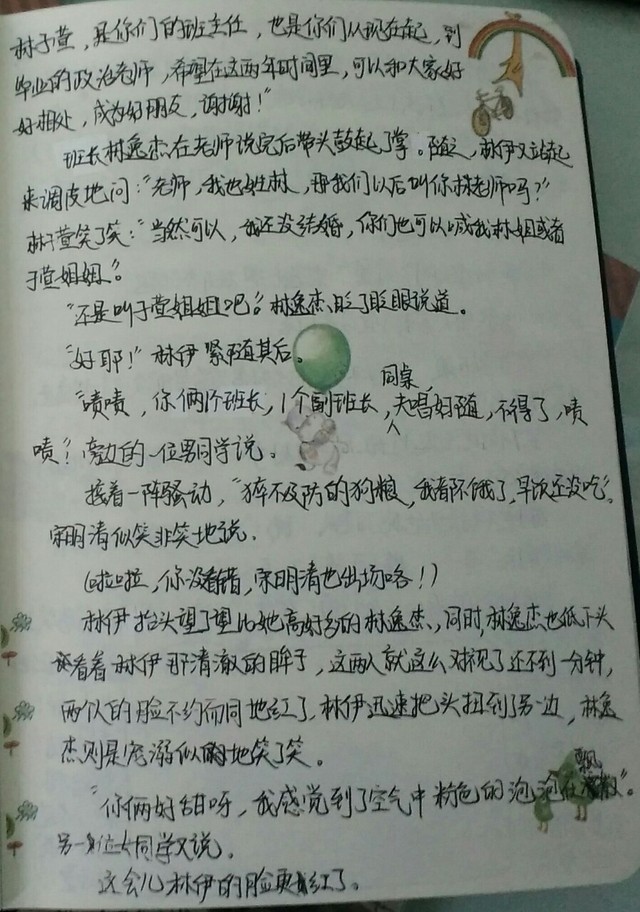 林子萱，是你们的班主任，也是你们从现在起，到
毕业的政治老师，希望在这两年时间里，可以和大家好
好相处，成为好朋友，谢谢！"
班长林逸杰在老师说完后带头鼓起了掌。随之，林伊又站起
来调皮地问："老师，我也姓林，那我们以后叫你林老师吗？"
林子萱笑了笑："当然可以，我还没结婚，你们也可以喊我林姐或者
子萱姐姐。"
"还是叫子萱姐姐吧。"林逸杰眨了眨眼说道。
"好耶！"林伊紧随其后。
同桌，
"啧啧，你俩1个班长，1个副班长，夫唱妇随，不得了，啧
啧"！旁边的一位男同学说。
接着一阵骚动，"猝不及防的狗粮，我都不饿了，早饭还没吃"。
宋明清似笑非笑地说。
（啦啦，你没看错，宋明清也出场咯！）
林伊抬头望了望比她高好多的林逸杰，同时，林逸杰也低下头
看着林伊那清澈的眸子，这两人就这么对视了还不到一分钟，
两人的脸不约而同地红了，林伊迅速把头扭到了另一边，林逸
杰则是宠溺似的地笑了笑。
"你俩好甜呀，我感觉到了空气中粉色的泡泡在飘"。
另一位女同学又说。
这会儿林伊的脸更红了。